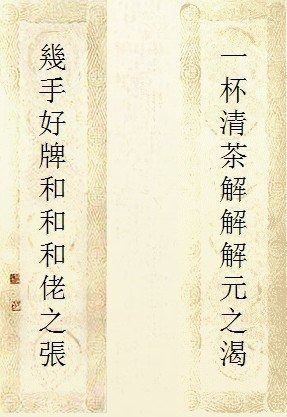 一杯清茶解解解元之渴
幾手好牌和和和佬之張